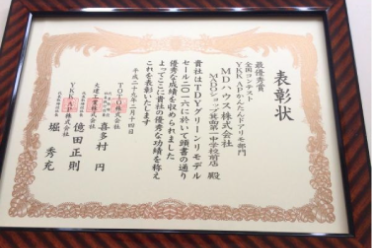 表彰状
最優秀賞
全国コンテスト
YKKAPかんたんドアリモ部門
MDハウス株式会社
MADOショップ箕面第一中学校前店 殿
貴社はTDYグリーンリモデル
セール二〇一六に於いて頭書の通り
優秀な成績を収められました
よってここに貴社の優秀な功績を称え
これを表彰いたします
平成二十九年二月十四日
TOTO株式会社
喜多村 円
大建工業株式会社
億田正則
YKKAP株式会社
堀 秀充